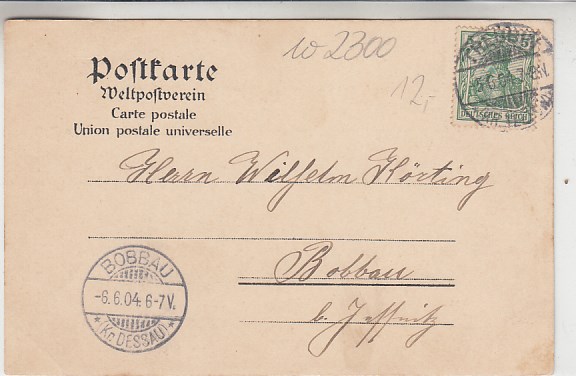 w 2300
12,-
Postkarte
Weltpostverein
Carte postale
Union postale universelle
DEUTSCHES REICH
Herrn Wilhelm Körting
Bobbau
b. Jeßnitz
BOBBAU
-6.6.04. 6-7V.
* (Kr. DESSAU) *